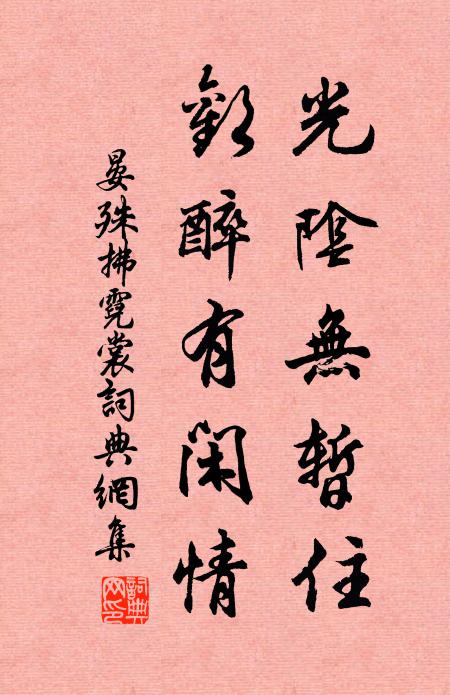 光陰無暫住
歡醉有閑情
晏殊拂霓裳詞典網集
詞典网印